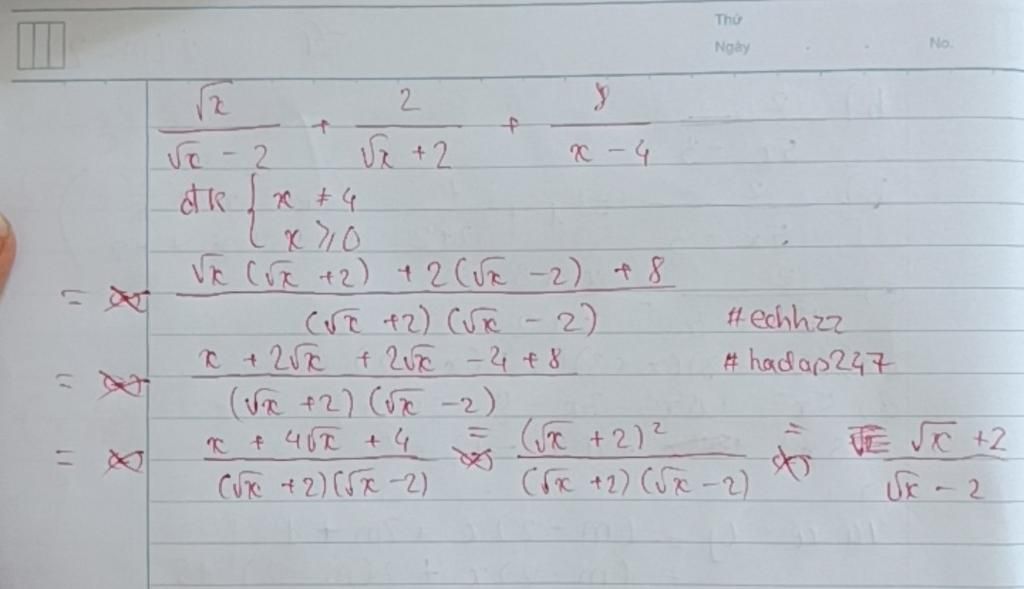 Thứ
Ngày . . No.
√x/(√x - 2) + 2/(√x + 2) + 8/(x - 4)
đk { x ≠ 4
x ⩾ 0
= (√x (√x + 2) + 2(√x - 2) + 8)/((√x + 2) (√x - 2))
#echhzz
= (x + 2√x + 2√x - 4 + 8)/((√x + 2) (√x - 2))
#hadap247
= (x + 4√x + 4)/((√x + 2)(√x - 2)) = (√x + 2)²/((√x + 2) (√x - 2)) = (√x + 2)/(√x - 2)